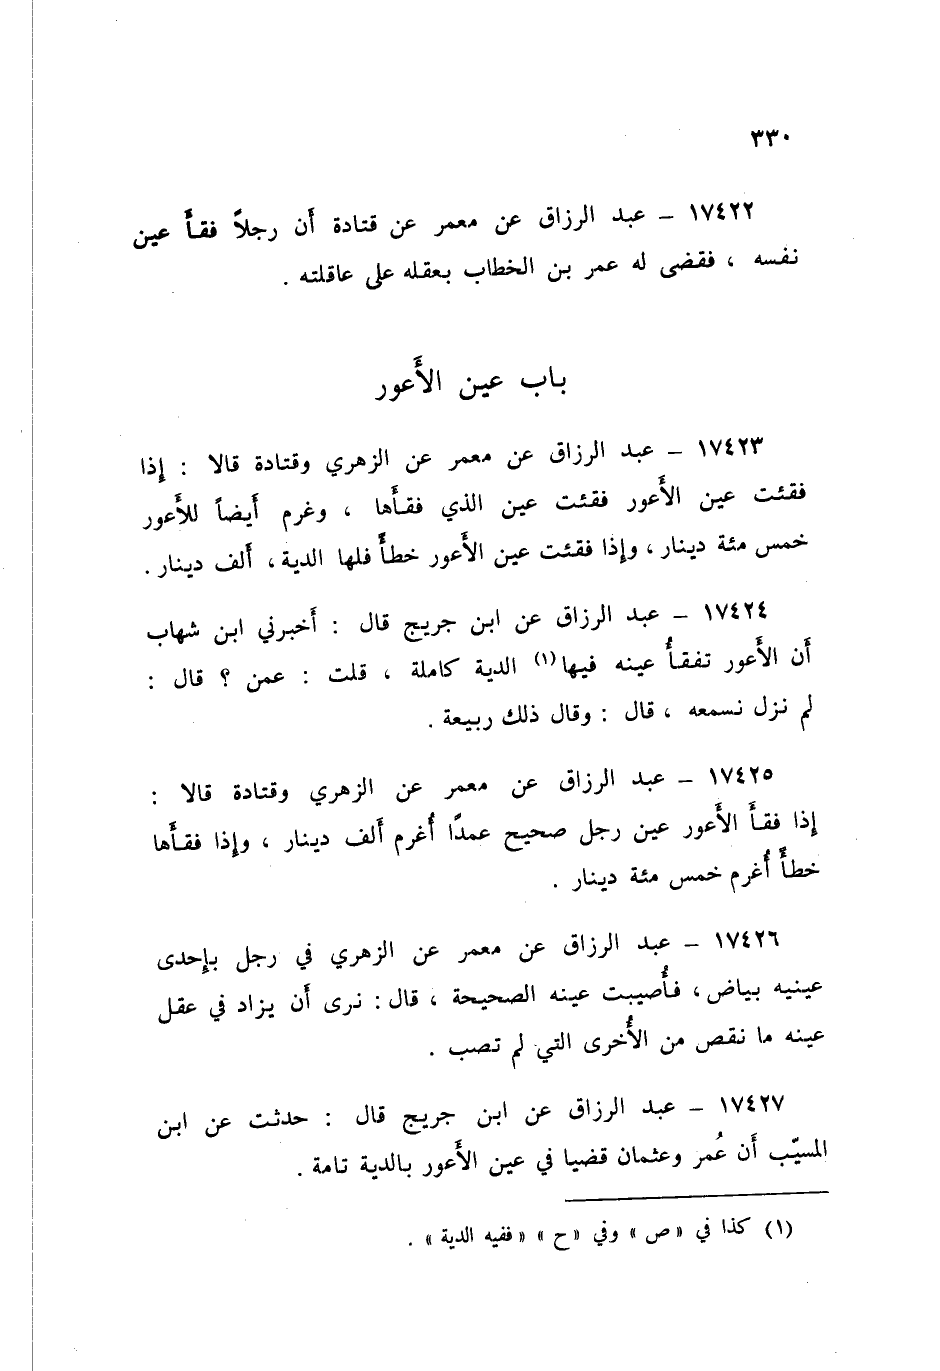 ٣٣٠
١٧٤٢٢ – عبد الرزاق عن معمر عن قتادة أن رجلاً فقأَ عين
نفسه ، فقضى له عمر بن الخطاب بعقله على عاقلته .
باب عين الأَعور
١٧٤٢٣ – عبد الرزاق عن معمر عن الزهري وقتادة قالا : إذا
فقئت عين الأَعور فقئت عين الذي فقأَها ، وغرم أَيضاً للأَعور
خمس مئة دينار ، وإذا فقئت عين الأَعور خطأً فلها الدية ، أَلف دينار .
١٧٤٢٤ – عبد الرزاق عن ابن جريج قال : أَخبرني ابن شهاب
أَن الأَعور تفقأُ عينه فيها (١) الدية كاملة ، قلت : عمن ؟ قال :
لم نزل نسمعه ، قال : وقال ذلك ربيعة .
١٧٤٢٥ – عبد الرزاق عن معمر عن الزهري وقتادة قالا :
إذا فقأَ الأَعور عين رجل صحيح عمدًا أُغرم أَلف دينار ، وإذا فقأَها
خطأً أُغرم خمس مئة دينار .
١٧٤٢٦ – عبد الرزاق عن معمر عن الزهري في رجل بإحدى
عينيه بياض ، فأُصيبت عينه الصحيحة ، قال : نرى أَن يزاد في عقل
عينه ما نقص من الأُخرى التي لم تصب .
١٧٤٢٧ – عبد الرزاق عن ابن جريج قال : حدثت عن ابن
المسيّب أَن عُمر وعثمان قضيا في عين الأَعور بالدية تامة .
(١) كذا في «ص» وفي «ح» «ففيه الدية» .